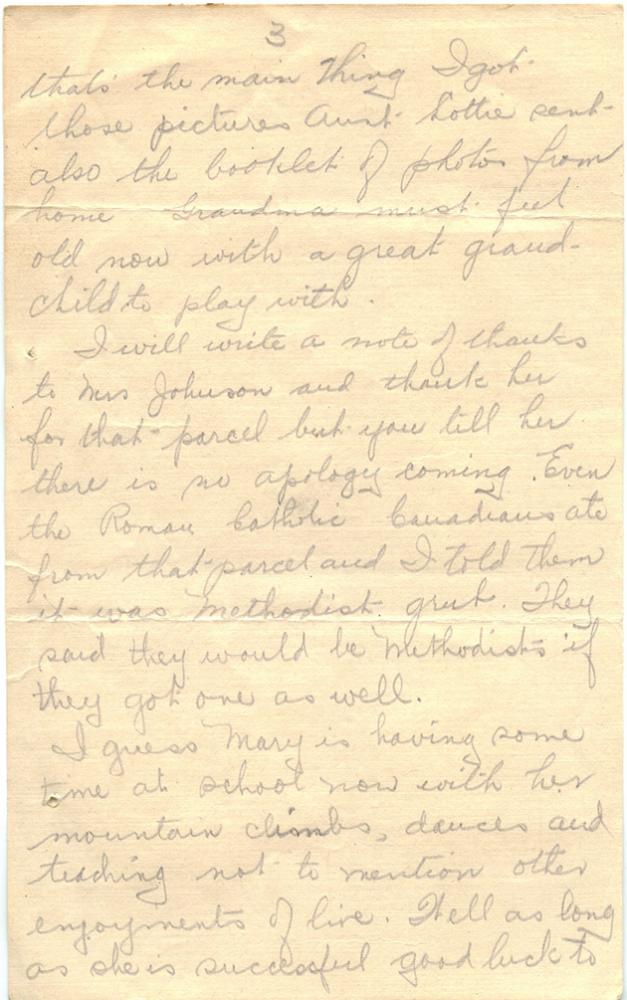 3
thats the main thing I got
those pictures Aunt Lottie sent
also the booklet of photos from
home Grandma must feel
old now with a great grand-
child to play with.
I will write a note of thanks
to Mrs Johnson and thank her
for that parcel but you till her
there is no apology coming. Even
the Roman Catholic Canadians ate
from that parcel and I told them
it was Methodist grub. They
said they would be Methodists if
they got one as well.
I guess Mary is having some
time at school now with her
mountain climbs, dances and
teaching not to mention other
enjoyments of live. Well as long
as she is successful good luck to